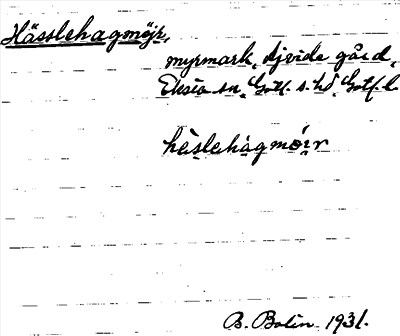 Hässlehagmöjr,
myrmark, Djvide gård,
Eksta sn, Gotl. s. hd, Gotl. l.
hèslehàgmǿir
B. Bolin 1931.